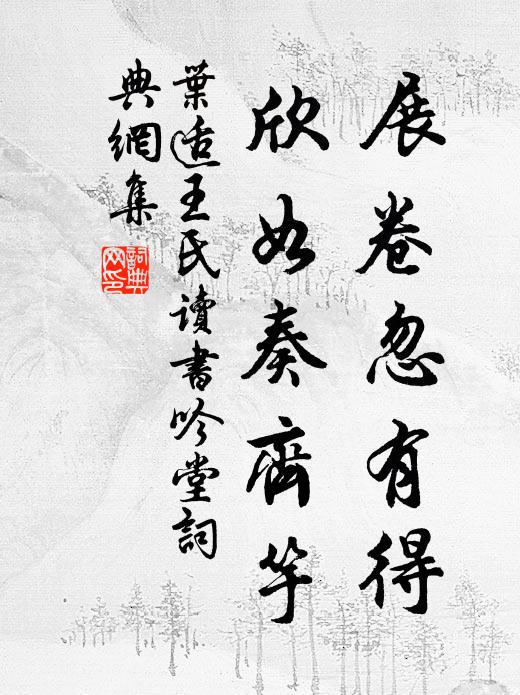 展卷忽有得
欣如奏齊竽
葉適王氏讀書吟堂詞
典網集
詞典
网印